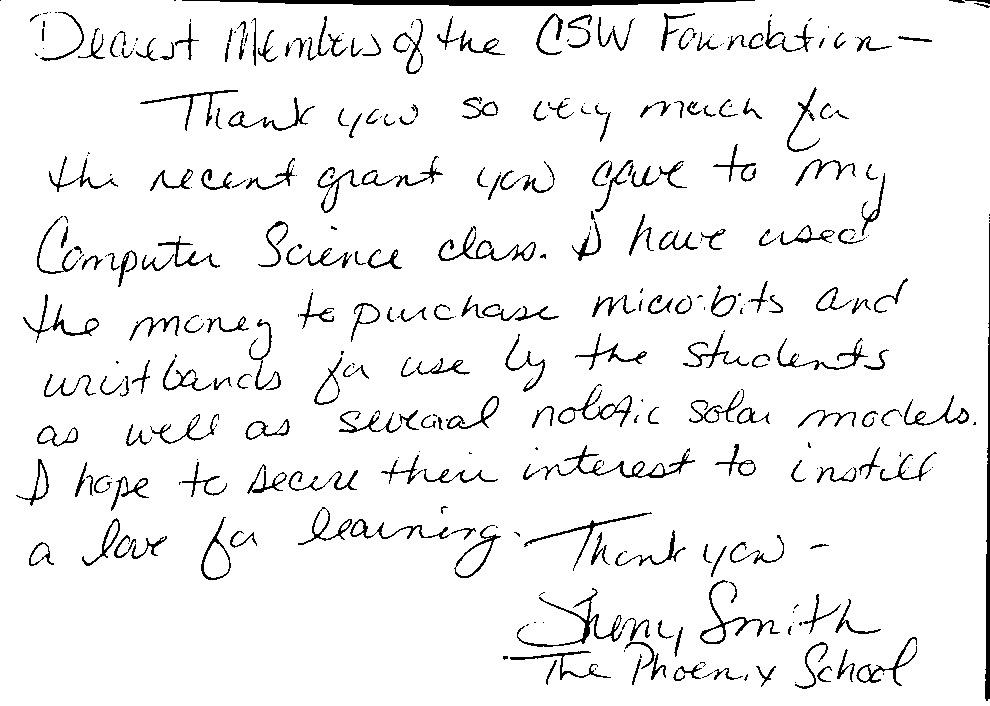 Dearest Members of the CSW Foundation —
Thank you so very much for
the recent grant you gave to my
Computer Science class. I have used
the money to purchase micro:bits and
wristbands for use by the students
as well as several robotic solar models.
I hope to secure their interest to instill
a love for learning.
Thank you –
Sherry Smith
The Phoenix School